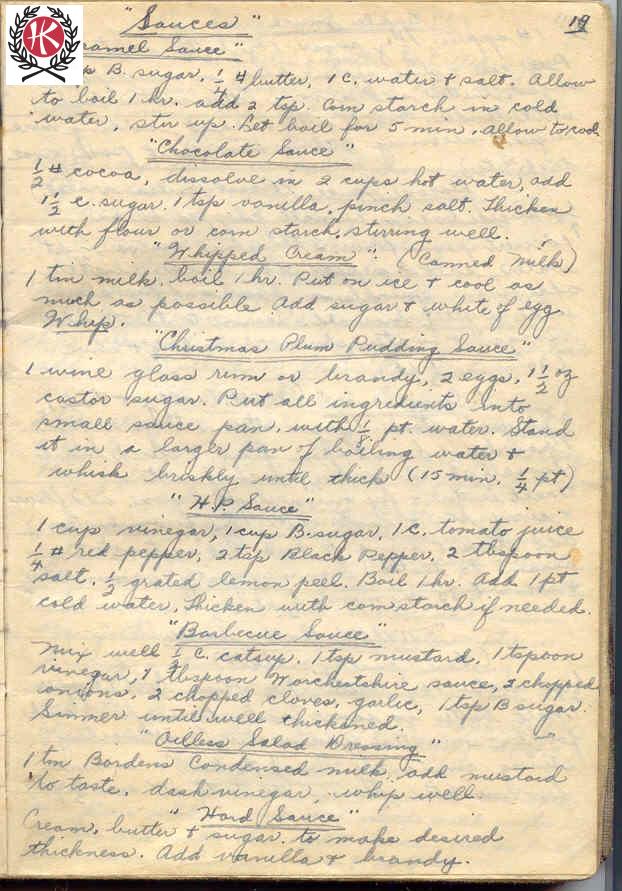 "Sauces"
19
ramel Sauce"
B. sugar, 1/4 # butter, 1 C. water & salt. Allow
to boil 1 hr. add 2 tsp. Corn starch in cold
water, stir up. Let boil for 5 min, allow to cool
"Chocolate Sauce"
1/2 # cocoa, dissolve in 2 cups hot water, add
1 1/2 c. sugar. 1 tsp vanilla, pinch salt. Thicken
with flour or corn starch, stirring well.
"Whipped Cream". (Canned Milk)
1 tin milk. boil 1 hr. Put on ice & cool as
much as possible. Add sugar & white of egg
Whip.
"Christmas Plum Pudding Sauce"
1 wine glass rum or brandy, 2 eggs, 1 1/2 oz
castor sugar. Put all ingredients into
small sauce pan, with 1/8 pt. water. Stand
it in a larger pan of boiling water &
whisk briskly until thick (15 min. 1/4 pt)
"H.P. Sauce"
1 cup vinegar, 1 cup B. sugar, 1 C. tomato juice
1/4 # red pepper, 2 tsp Black Pepper. 2 tbspoon
salt. 1/2 grated lemon peel. Boil 1 hr. Add 1 pt
cold water, Thicken with cornstarch if needed.
"Barbecue Sauce"
Mix well 1/2 C. catsup, 1 tsp mustard, 1 tspoon
vinegar, 1 tbspoon Worchestshire sauce, 2 chopped
onions. 2 chopped cloves, garlic, 1 tsp B sugar.
Simmer until well thickened.
"Oilless Salad Dressing"
1 tin Bordens Condensed milk, add mustard
to taste, dash vinegar, whip well.
"Hard Sauce"
Cream, butter & sugar, to make desired
thickness. Add vanilla & brandy.